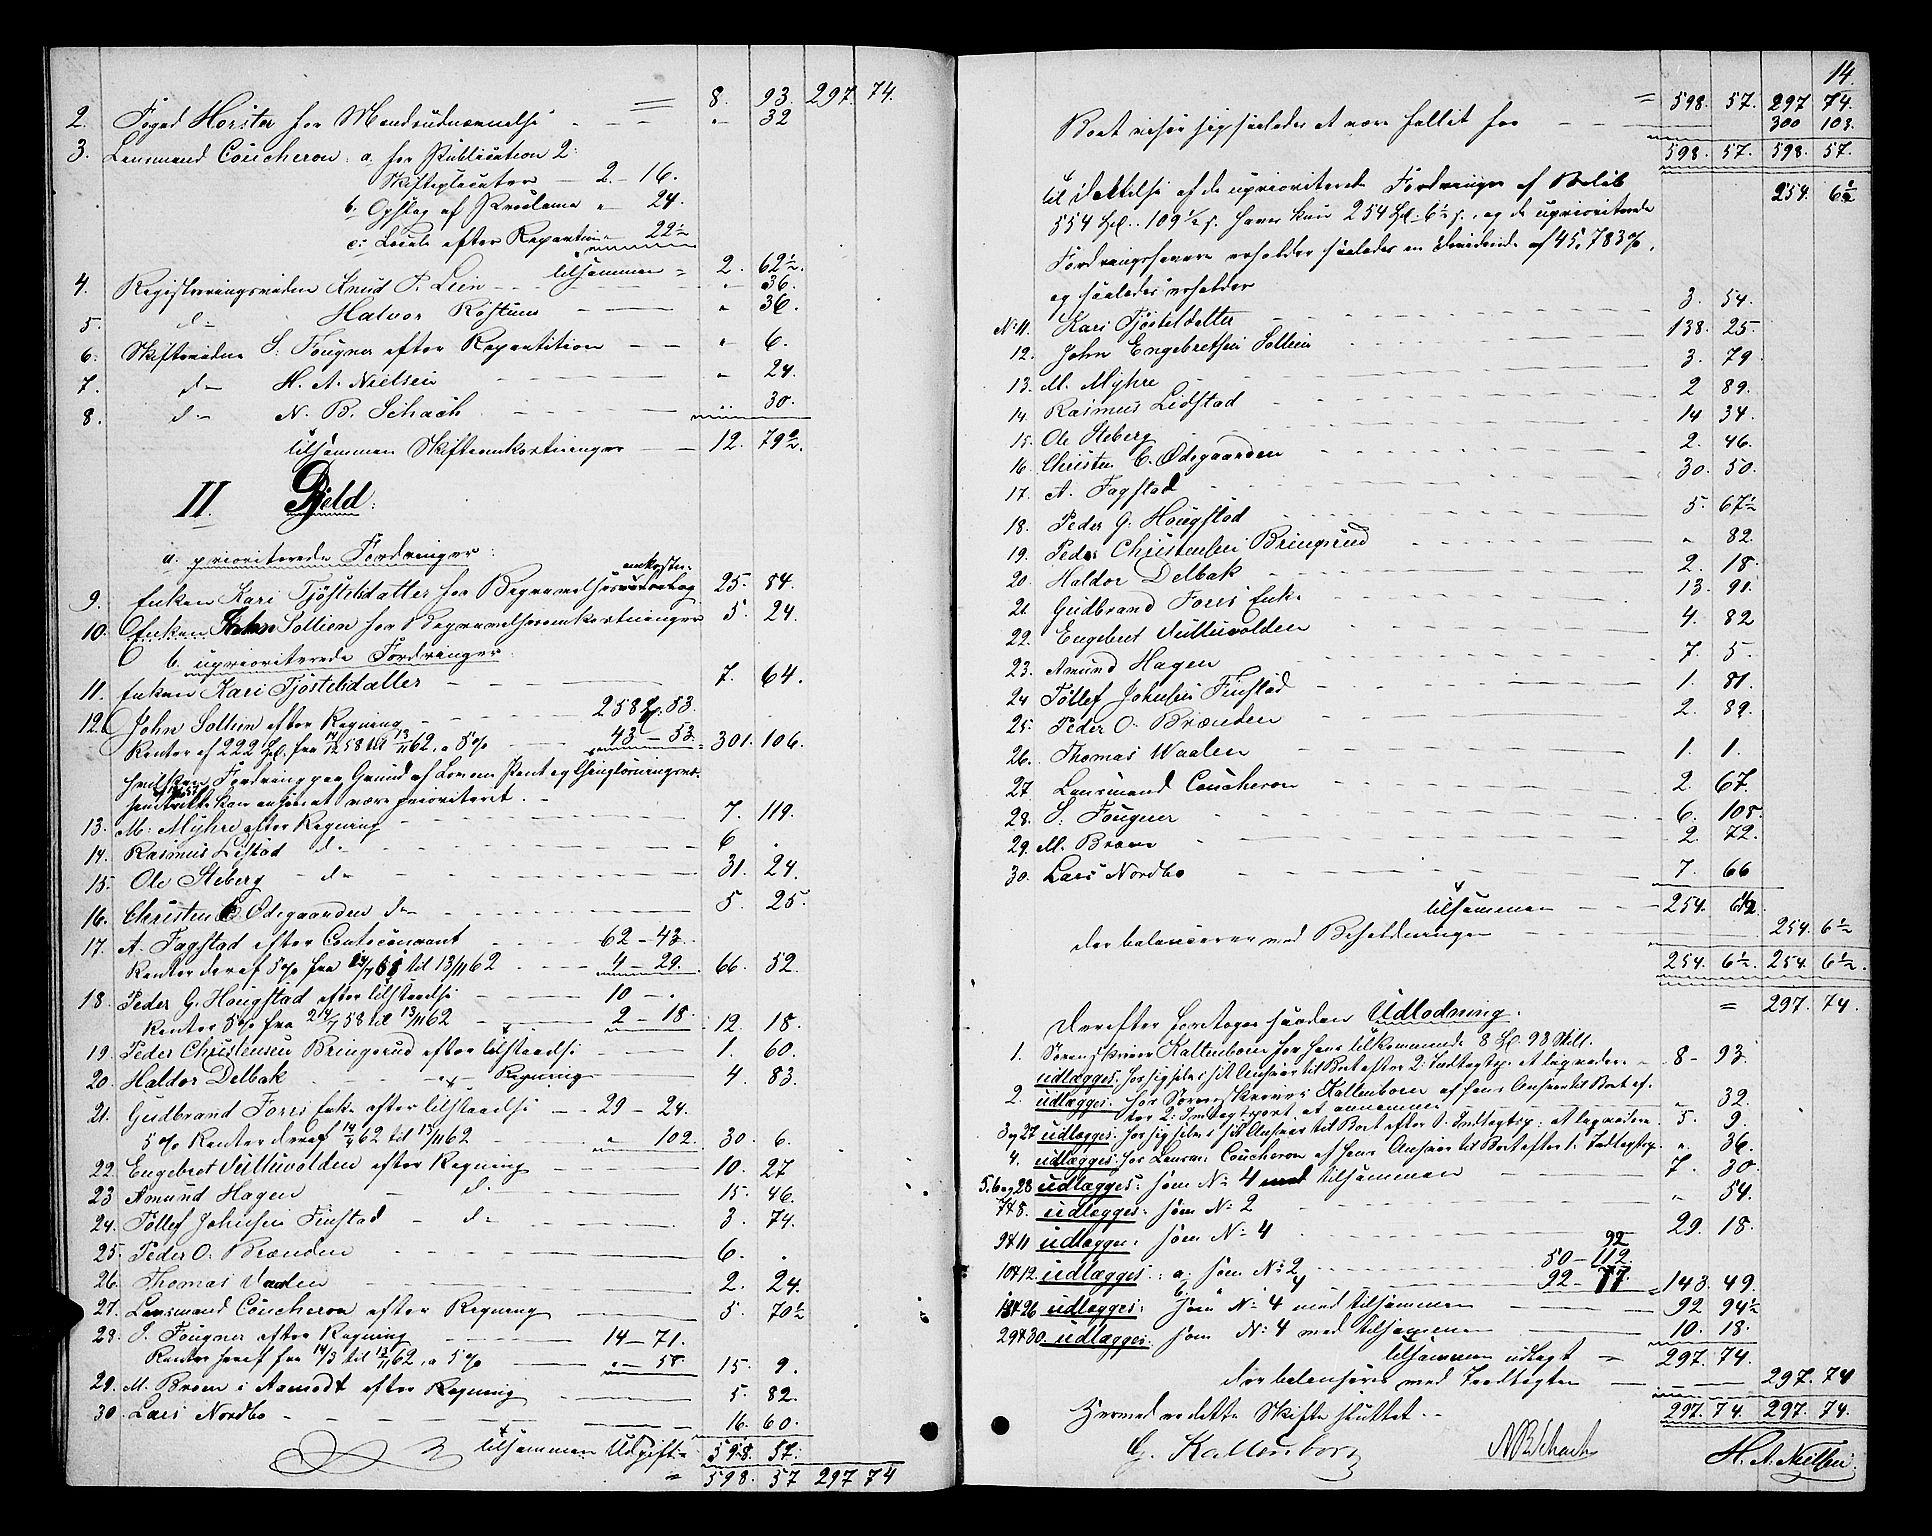 = 8. 93. 297. 74.
2. Foged Horster for Mandsudnævnelse " 32
3. Lensmand Coucheron: a. for Publication 2:
Skifteplacater 2 – 16.
b. Opslag af Proclama " 24.
c: Locale efter Repartition " 22½
tilsammen = 2. 62½.
4. Registreringsvidne Knud P. Lien " 36.
5. do Halvor Rostum " 36.
6. Skiftevidne S. Fougner efter Repartition " 6.
7. do H. A. Nielsen " 24.
8. do N. B. Schach " 30.
tilsammen Skifteomkostninger 12. 79½.
II. Gjeld:
a. prioriterede Fordringer:
9. Enken Kari Tjøstelsdatter for Begravelsesomkostn: 25. 84.
10. Enken Sollien for Begravelsesomkostninger 5 24.
b. uprioriterede Fordringer.
11. Enken Kari Tjøstelsdatter 7. 64.
12. John Sollien efter Regning 258 53.
Renter af 222 fra 14/12 58 til 13/11 62, a 5% 43 – 53. 301. 106.
hvilken Fordring paa Grund af Loven om Pant og Thinglæsning
kan ansees at være prioriteret.
13. M. Myhre efter Regning 7. 119.
14. Rasmus Listad do 6 .
15. Ole Steberg do 31. 24.
16. Christen C. Ødegaarden do 5. 25.
17. A. Fagstad efter Contocourant 62 – 43.
Renter deraf 5% fra til 13/11 62 4 – 29. 66. 52.
18. Peder G. Hougstad efter tilstaaelse 10 – .
Renter 5% fra 58 til 13/11 62 2 – 18. 12. 18.
19. Peder Christensen Bringsrud efter tilstaaelse 1. 60.
20. Haldor Delbak Regning 4. 83.
21. Gudbrand Forrs Enke efter tilstaaelse 29 – 24.
5% Renter deraf 62 til 13/11 62 " 102. 30. 6.
22. Engebret Tulluvolden efter Regning 10. 27
23 Amund Hagen do 15. 46.
24. Tollef Johnsen Finstad do 3. 74.
25. Peder O. Brænden 6. .
26. Thomas Vaalen 2. 24.
27. Lensmand Coucheron efter Regning 5 70½
28. S. Fougner efter Regning 14 – 71.
Renter heraf fra 14/3 til 13/11 62, a 5% " – 58. 15. 9.
29. M. Broen i Aamodt efter Regning 5. 82.
30. Lars Nordbo 16. 60.
tilsammen Udgift = 598. 57.
= 598. 57 297 74
14.
= 598. 57. 297 74.
Boet viser sig saaledes at være fallit for 300 103.
598. 57. 598. 57.
til Dækkelse af de uprioriterede Fordringer af Beløb 254. 6½
554 109½ haves kun 254 6½, og de uprioriterede
Fordringshavere erholder saaledes en Dividende af 45,783%,
og saaledes erholder
No 11. Kari Tjøstelsdatter 3. 54.
12. John Engebretsen Sollien 138. 25.
13. M. Myhre 3. 79
14 Rasmus Lidstad 2 89.
15. Ole Steberg 14 34.
16 Christen C. Ødegaarden 2. 46.
17. A. Fagstad 30. 50.
18. Peder G. Hougstad 5. 67½
19. Peder Christensen Bringsrud " 82.
20. Haldor Delbak 2. 18.
21 Gudbrand Forrs Enke 13. 91.
22. Engebret Tulluvolden 4. 82
23. Amund Hagen 7. 5.
24 Tollef Johnsen Finstad 1. 81.
25. Peder O. Brænden 2. 89.
26. Thomas Waalen 1. 1.
27. Lensmand Coucheron 2. 67.
28. S. Fougner 6. 108.
29. M. Broen 2. 72.
30. Lars Nordbo 7. 66
tilsammen 254. 6½
der balancerer med Beholdningen 254. 6½
254. 6½. 254. 6½.
Derefter foretoges saadan Udlodning. = 297. 74.
1. Sorenskriver Kaltenborn for hans tilkommende 8 93 Skill.
udlægges: for sig selv i sit Ansvar til Boet efter 2: Indtægtsp. at ligvidere 8 – 93.
2. udlægges: for Sorenskriver Kaltenborn af hans Ansvar til Boet ef-
ter 2: Indtægtspost at annamme " 32.
3 og 27 udlægges: for sig selv i sit Ansvar til Boet efter 1. Indtægtsp. at ligvidere 5. 9.
4. udlægges: hos Lensm: Coucheron af hans Ansvar til Boet efter 1. Indtægtsp. " 36.
5. 6 og 28 udlægges: som No 4 med tilsammen 7. 30.
7 & 8. udlægges: som No 2 " 54.
9 & 11 udlægges: som No 4 29. 18.
10 & 12. udlægges: a. som No 2 50 – 112 92
b. " 4 92 – 77. 143. 49.
13 & 26 udlægges: som No 4 med tilsammen 92 94½
29 & 30. udlægges: som No 4 med tilsammen 10. 18.
tilsammen udlagt = 297. 74.
der balancerer med Indtægten 297. 74
297. 74. 297. 74.
Hermed er dette Skifte sluttet.
G. Kaltenborn NBSchach H. A. Nielsen